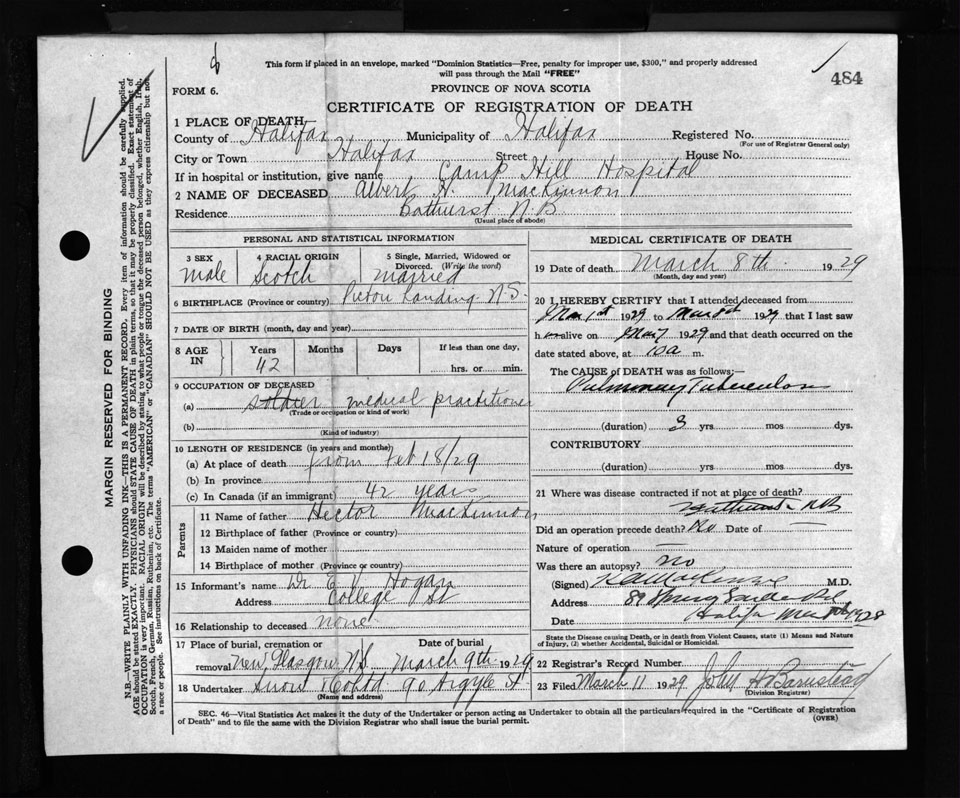 This form if placed in an envelope, marked "Dominion Statistics—Free, penalty for improper use, $300," and properly addressed
will pass through the Mail "FREE"
484
FORM 6.
PROVINCE OF NOVA SCOTIA
CERTIFICATE OF REGISTRATION OF DEATH
1 PLACE OF DEATH
County of Halifax Municipality of Halifax Registered No.
(For use of Registrar General only)
City or Town Halifax Street House No.
If in hospital or institution, give name Camp Hill Hospital
2 NAME OF DECEASED Albert H. MacKinnon
Residence Bathurst N.B
(Usual place of abode)
PERSONAL AND STATISTICAL INFORMATION
3 SEX 4 RACIAL ORIGIN 5 Single, Married, Widowed or
Divorced. (Write the word)
male Scotch married
6 BIRTHPLACE (Province or country) Pictou Landing N.S.
7 DATE OF BIRTH (month, day and year)
8 AGE IN Years Months Days If less than one day,
42 hrs. or min.
9 OCCUPATION OF DECEASED
(a) soldier medical practitioner
(Trade or occupation or kind of work)
(b)
(Kind of industry)
10 LENGTH OF RESIDENCE (in years and months)
(a) At place of death from Feb 18/29
(b) In province
(c) In Canada (if an immigrant) 42 years
Parents
11 Name of father Hector MacKinnon
12 Birthplace of father (Province or country)
13 Maiden name of mother
14 Birthplace of mother (Province or country)
15 Informant's name Dr E V Hogan
Address College St
16 Relationship to deceased none
17 Place of burial, cremation or Date of burial
removal New Glasgow N.S. March 9th 1929
18 Undertaker Snow & Co Ltd 90 Argyle St
(Name and address)
MEDICAL CERTIFICATE OF DEATH
19 Date of death March 8th 1929
(Month, day and year)
20 I HEREBY CERTIFY that I attended deceased from
Mar 1st 1929 to Mar 8th 1929 that I last saw
h im alive on Mar 7 1929 and that death occurred on the
date stated above, at 10 a m.
The CAUSE of DEATH was as follows:—
Pulmonary Tuberculosis
(duration) 3 yrs mos dys.
CONTRIBUTORY
(duration) yrs. mos. dys.
21 Where was disease contracted if not at place of death?
Bathurst NB
Did an operation precede death? No Date of —
Nature of operation —
Was there an autopsy? no
(Signed) M.D.
Address 89 Spring Garden Rd
Date Halifax
State the Disease causing Death, or in death from Violent Causes, state (1) Means and Nature
of Injury, (2) whether Accidental, Suicidal or Homicidal.
22 Registrar's Record Number
23 Filed March 11 1929 John H Barnstead
(Division Registrar)
SEC. 46—Vital Statistics Act makes it the duty of the Undertaker or person acting as Undertaker to obtain all the particulars required in the "Certificate of Registration
of Death" and to file the same with the Division Registrar who shall issue the burial permit.
(OVER)
MARGIN RESERVED FOR BINDING
N.B.—WRITE PLAINLY WITH UNFADING INK—THIS IS A PERMANENT RECORD. Every item of information should be carefully supplied.
AGE should be stated EXACTLY. PHYSICIANS should STATE CAUSE OF DEATH in plain terms, so that it may be properly classified. Exact statement of
OCCUPATION is very important. RACIAL ORIGIN will be described by stating to what people or tongue the deceased person belonged, whether English, Irish,
Scotch, French, German, Russian, Ruthenian, etc. The terms "AMERICAN" or "CANADIAN" SHOULD NOT BE USED as they express citizenship but not
a race or people. See instructions on back of Certificate.